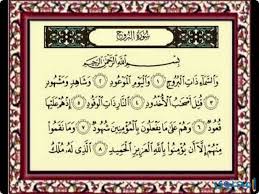 سورة البروج
بسم الله الرحمن الرحيم
والسماء ذات البروج ١ واليوم الموعود ٢ وشاهد ومشهود
٣ قتل أصحاب الأخدود ٤ النار ذات الوقود ٥ إذ هم عليها
قعود ٦ وهم على ما يفعلون بالمؤمنين شهود ٧ وما نقموا
منهم إلا أن يؤمنوا بالله العزيز الحميد ٨ الذي له ملك